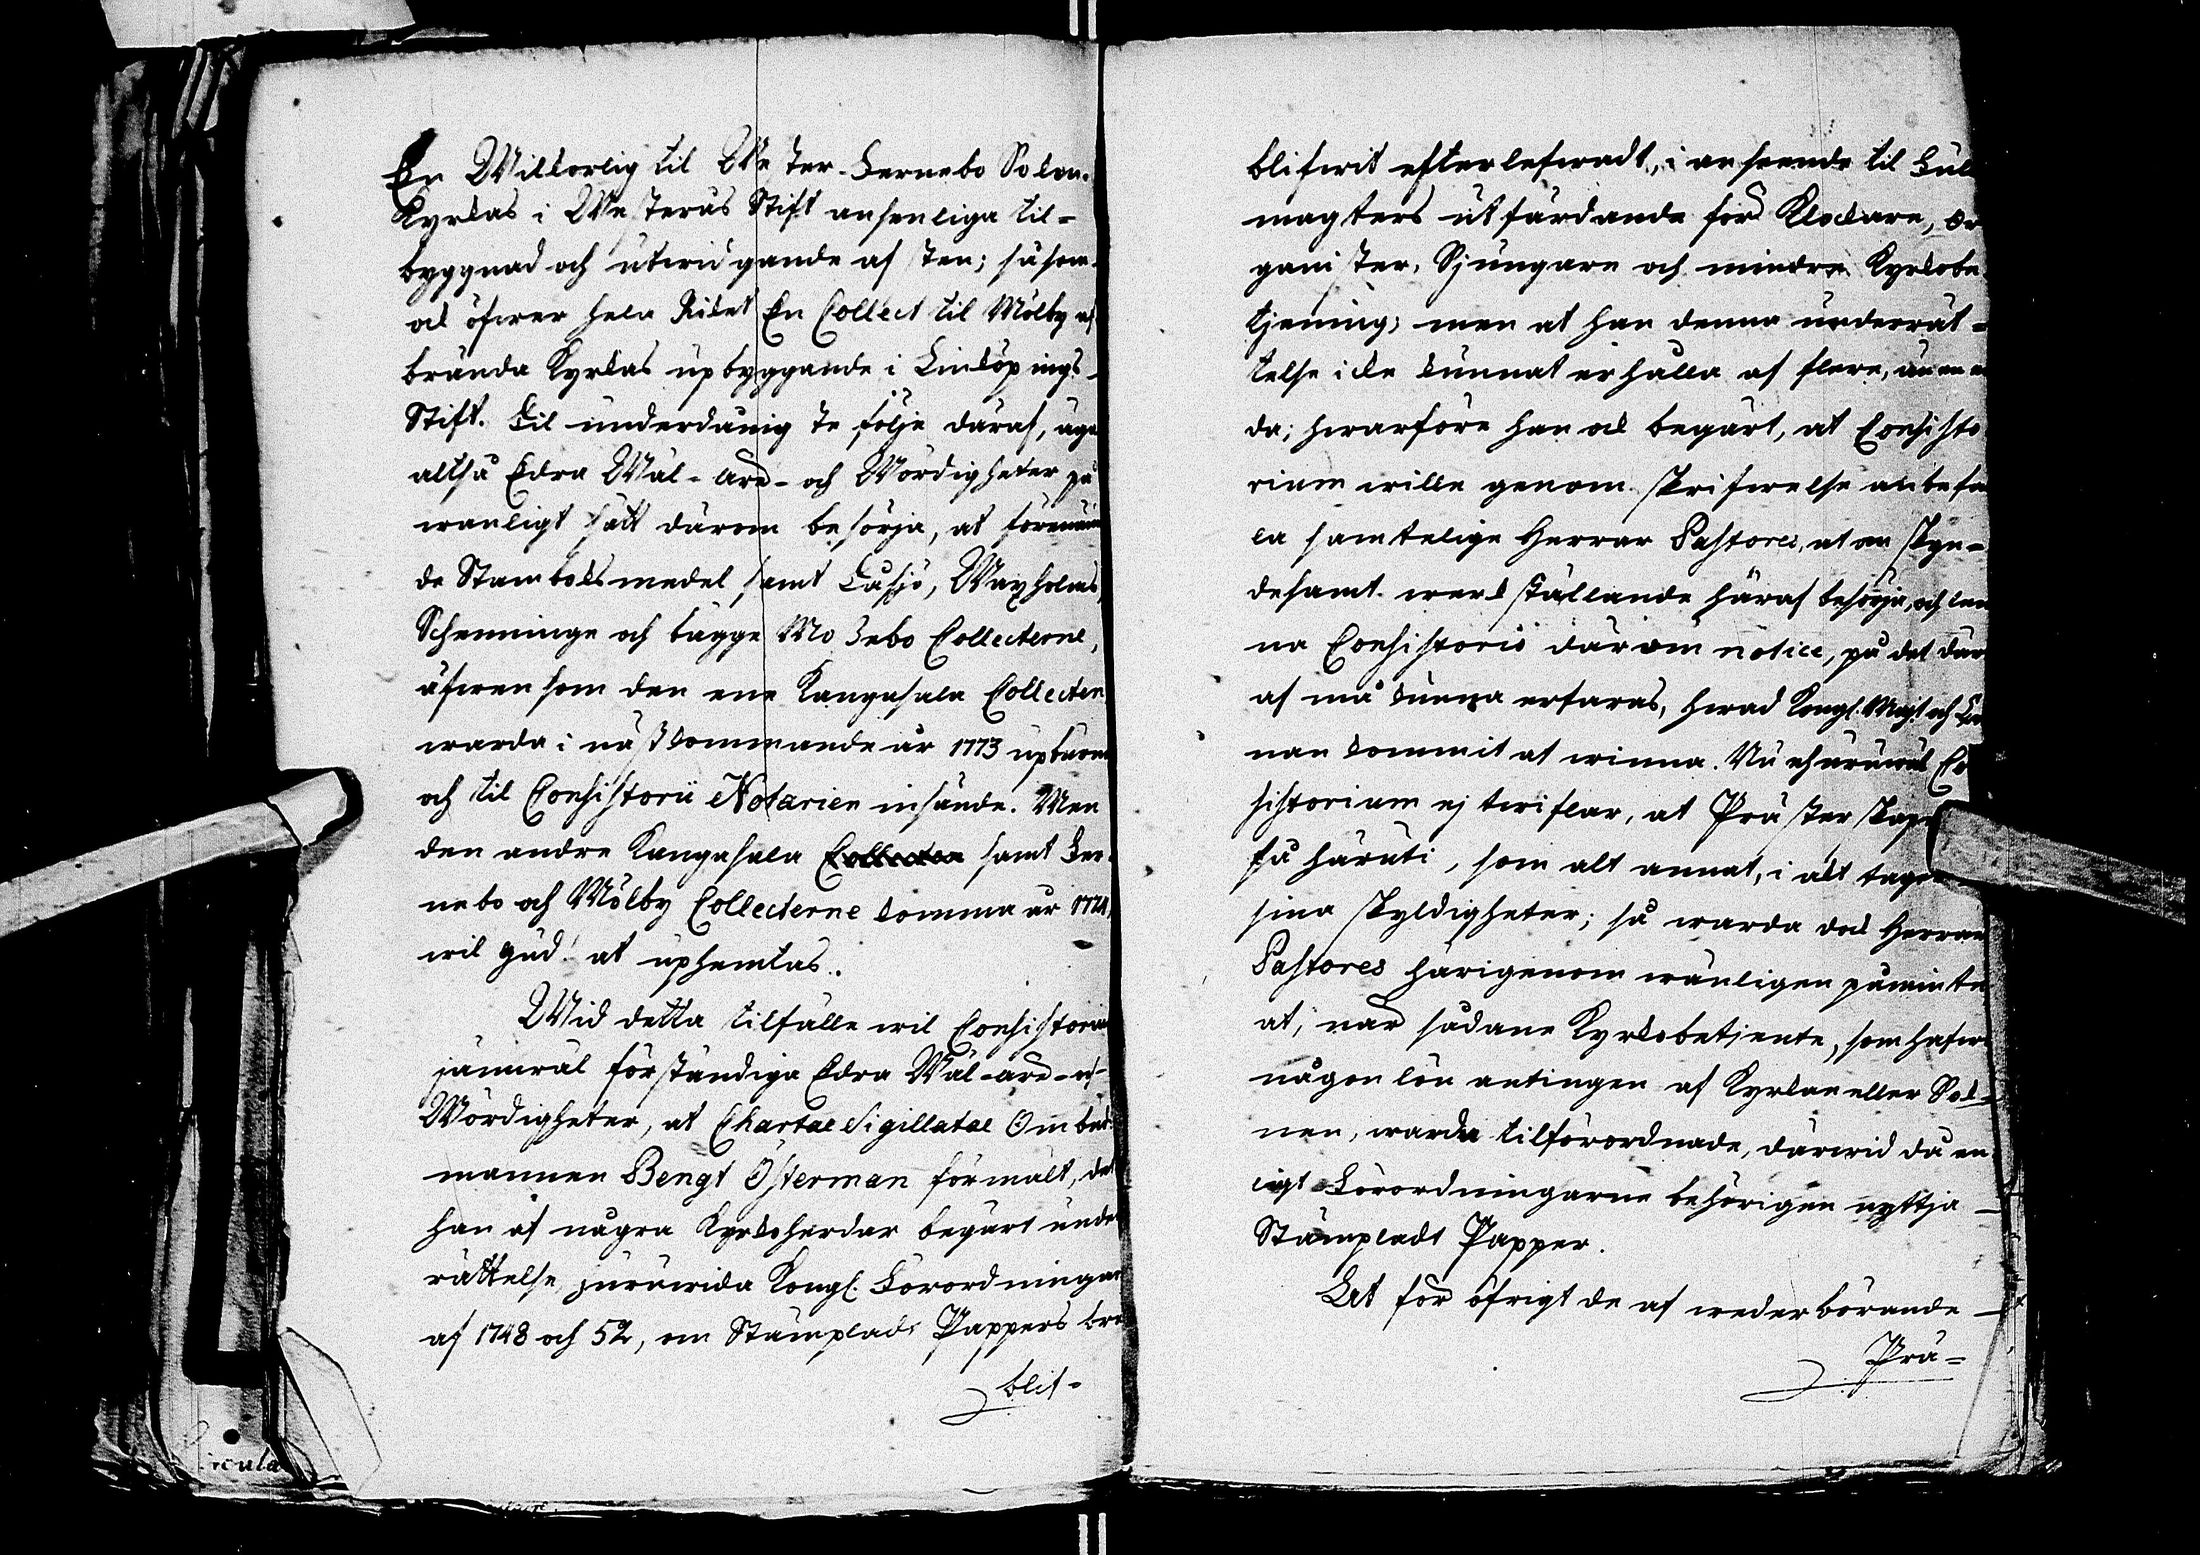 En Wilkorlig til Wester-Fernebo Sokne-
Kyrkas i Westerås Stift ansenliga til-
byggnad och utwidgande af sten; såsom
ock öfwer hela Riket En Collect til Mölby af-
brända Kyrkas upbyggande i Linköpings
Stift. Til underdånigste följe däraf, äga
altså Edra Wäl-Ard- och Wördigheter på
wanligt sätt därom besörja, at förenäm-
de Stamboksmedel samt Lusjö, Waxholms,
Schenninge och bägge Mo Sebo Collecterne,
äfwen som den ene Kangasala Collecten
warda i nästkommande år 1773 upburne
och til Consistorii Notarien insände. Men
den andre Kangasala Collecten samt Fer-
nebo och Mölby Collecterne komma år 1774,
wil Gud! at uphemtas.
Wid detta tilfälle wil Consistorium
jämwäl förständiga Edra Wäl-Ard- och
Wördigheter, at Chartae Sigillatae Ombuds-
mannen Bengt Österman förmält, det
han af några Kyrkoherdar begärt under-
rättelse, huruwida Kongl. Förordningar
af 1748 och 52, om Stämplade Pappers bru
blif-
blifwit efterlefwadt, i anseende til Full-
magters utfärdande för Klockare, Or-
ganister, Sjungare och mindre Kyrkobe-
tjening; men at han denna underrät-
telse icke kunnat erhålla af flere, än en en-
da; hwarföre han ock begärt, at Consisto-
rium wille genom skrifwelse anbefal-
la samtelige Herrar Pastores, at om skyn-
desamt werkställande häraf besörja, och lem-
na Consistorio därom notice, på det där-
af må kunna erfaras, hwad Kongl. Maj:t och Kro-
nan kommit at winna. Nu ehuruwäl Con-
sistorium ej twiflar, at Prästerskapet
så häruti, som alt annat, i akt tager
sina skyldigheter; så warda dock Herrar
Pastores härigenom wänligen påminte
at, när sådane Kyrkobetjente, som hafwa
någon lön antingen af Kyrkan eller Sok-
nen, warda tilförordnade, därwid då en-
ligt Förordningarne behörigen nyttja
Stämpladt Papper.
At för öfrigt de af wederbörande
Prä-